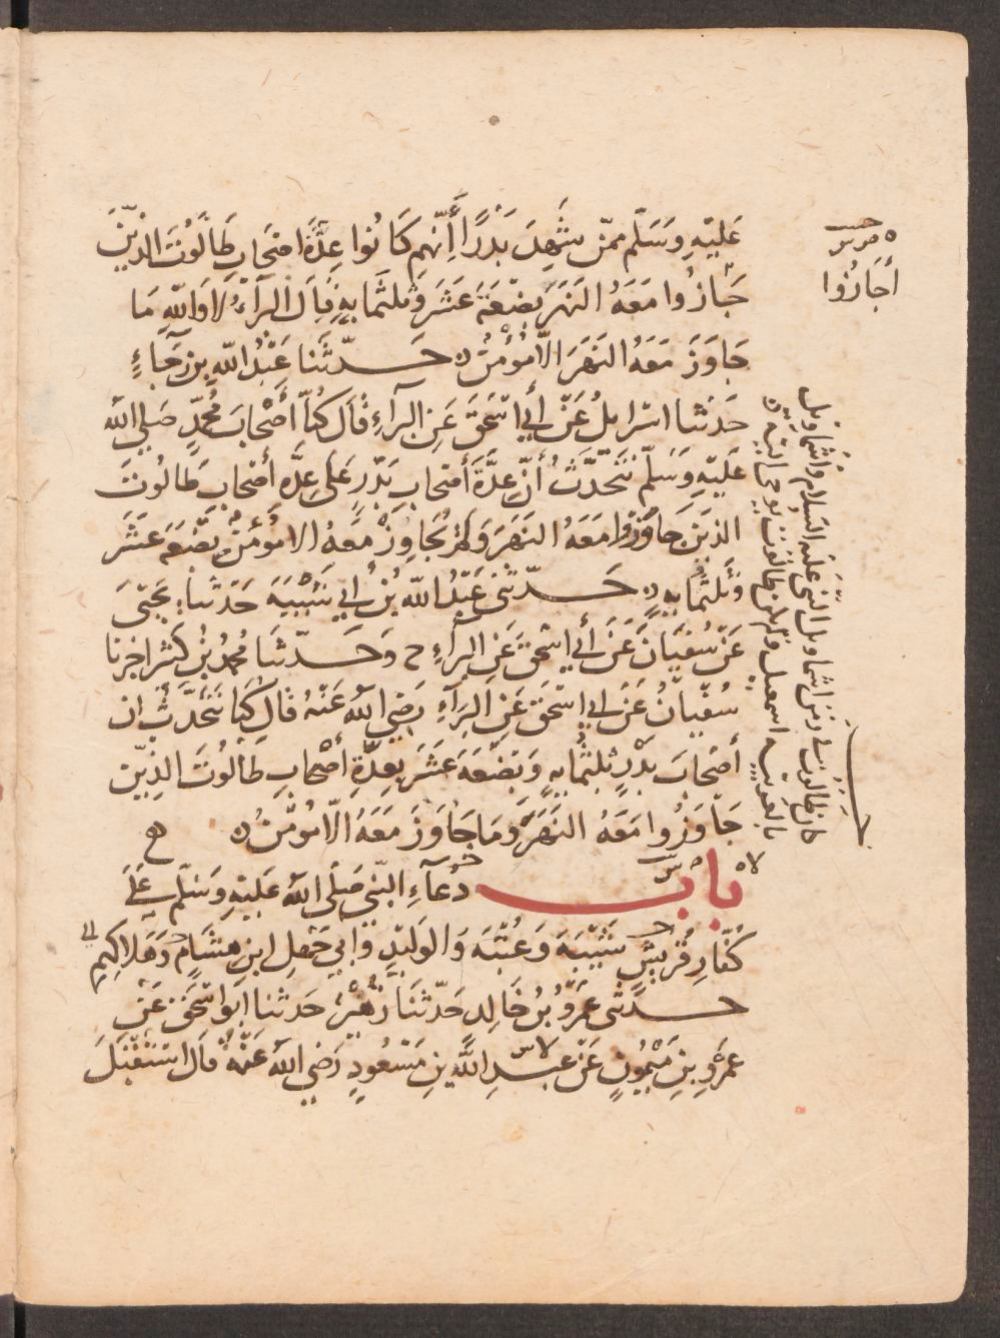 عَلَيْهِ وَسَلَّم ممّن شَهِدَ بَدْرًا أَنّهم كَانُوا عِدَّةَ اصْحَابِ طَالُوتَ الذِّينَ
جَازُوا مَعَهُ النَهَرَ بضْعَةَ عَشَرَ وثلثمَايةٍ قالَ البَرآءُ لا وَاللّهِ مَا
جَاوَزَ مَعَهُ النَهَرَ الّا مُؤْمنٌ ه حَدّثَنا عَبْدُ اللّهِ بن رَجَاءٍ
حَدَثنا اسْرايلُ عَنْ أَبي اسْحَقَ عَنِ البَرآءِ قَالَ كنّا أَصْحَابَ مُحمّدٍ صَلي اللّه
عَلَيْهِ وَسَلّم نَتَحَدّثُ أَنّ عدَّةَ أَصْحابِ بَدْرٍ عَلى عِدَّه أصْحابِ طَالُوتَ
الذيَن جَاوَزُوا مَعَهُ النَهَرَ وَلمْ يُجَاوِزْ مَعَهُ الا مُؤمنٌ بضْعَةَ عَشَرَ
وَثَلثمايه ه حَدّثنى عَبْدُ اللّه بْنُ أبي شَيْبَةَ حَدَثنا يَحْيَى
عَنْ سُفْيَانَ عَنْ أَبي إسْحقَ عَنِ البَرآءِ ح وَحَدّثنَا مُحمدُ بْنُ كثير اخبرنا
سُفْيَانُ عَنْ ابي إسْحَقَ عَنِ البَرَآءِ رَضِي اللّه عَنْهُ قالَ كنَّا نَتَحَدَّثُ ان
أَصْحَابَ بَدْرٍ ثلثمايةٍ وَبضْعَةَ عَشَرَ بِعدّةِ أصْحابِ طالُوتَ الذِيّن
جَاوَزُوا مَعَهُ النَهَرَ وَمَا جَاوَزَ مَعَهُ الّا مُؤْمنٌ ه
بابُ دُعآءِ النبيّ صَلى اللّه عَلَيْهِ وَسَلّم عَلَى
كُفّارِ قُرَيْشٍ شَيْبَةَ وَعُتْبَةَ وَالوَليْدِ وَابي جَهْلِ ابنِ هِشَامٍ وَهَلاكِهِم
حَدثنى عَمْرُو بْنُ خَالِدٍ حَدّثنَا زُهَيْرٌ حَدثنا ابَو اسْحَقَ عَنْ
عَمْرِو بنِ مَيْمُونٍ عَنْ عبدِ اللَّه بنِ مَسْعُودٍ رَضِي اللّه عَنْهُ قالَ اسْتَقْبَلَ
أَجَازُوا
كان طالوت في زمن اشماويل النبي عَليْه السَلام واشماويل
بالعربيه اسمعيل ولم يكن طالوت